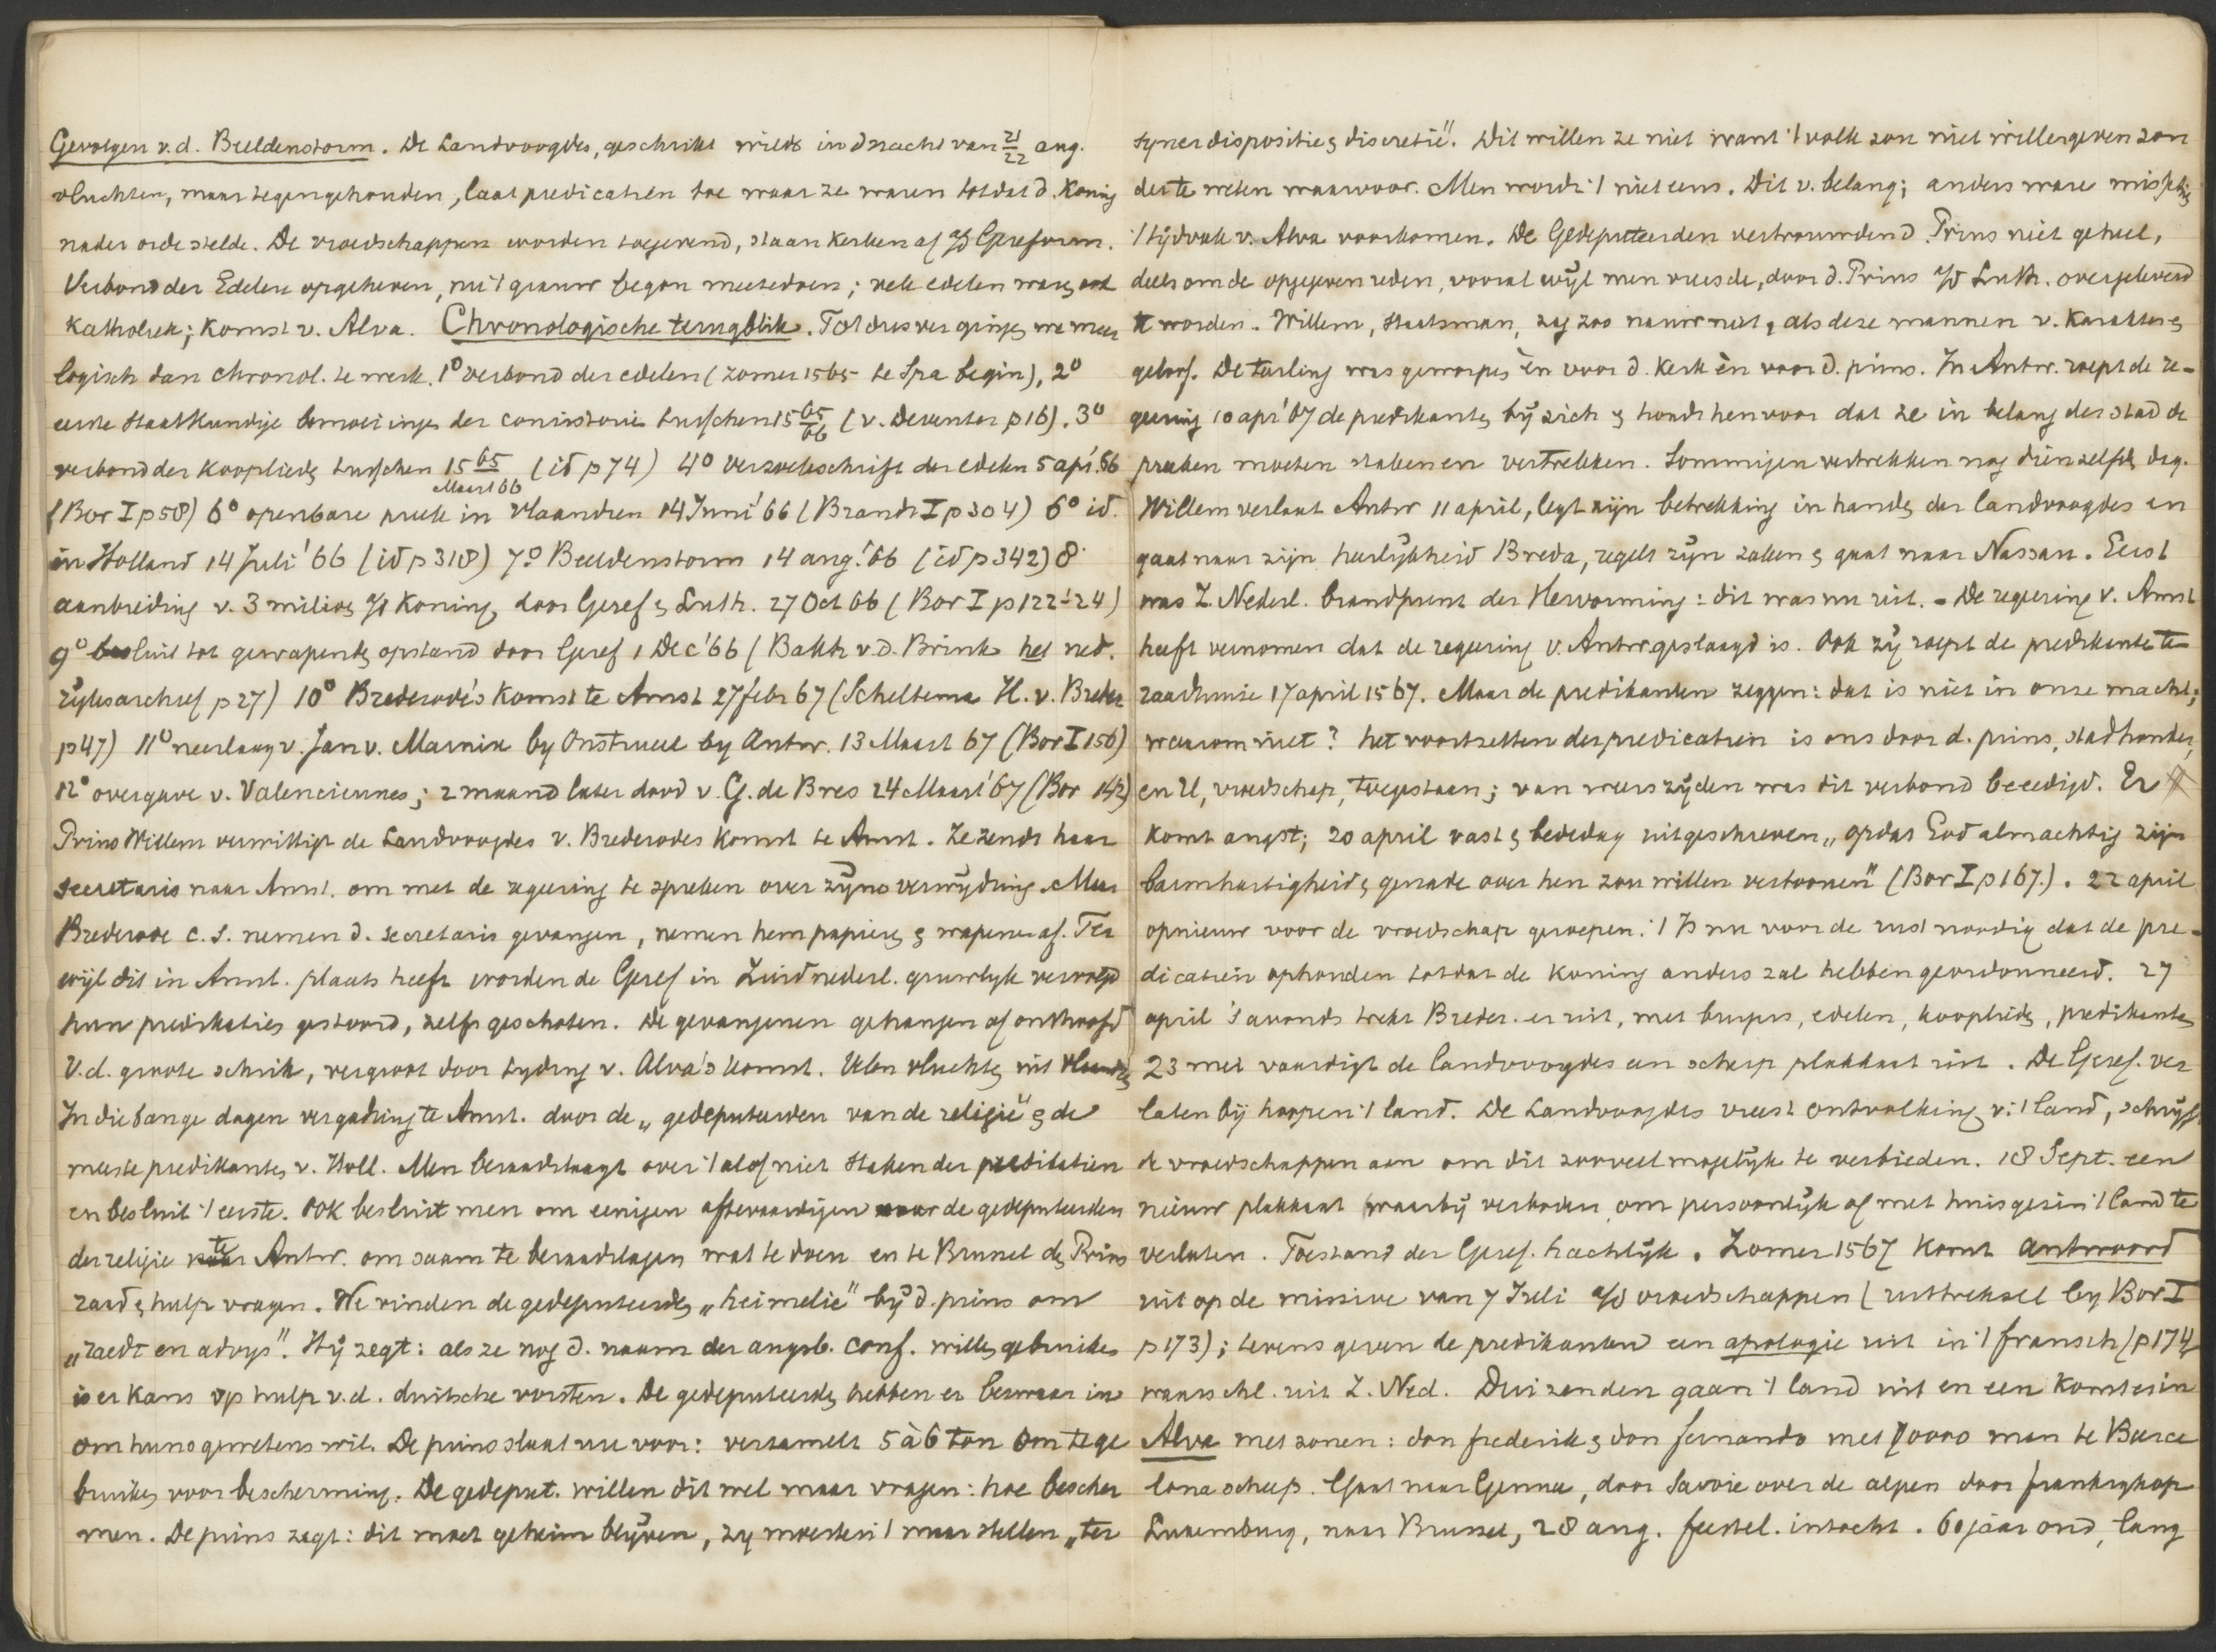 Gevolgen v.d. Beeldenstorm. De Landvoogdes, geschrikt wilde in d nacht van 21/22 aug.
vluchten, maar tegengehouden, laat predicatien toe waar ze waren totdat d. Koning
nader orde stelde. De vroedschappen worden toegevend, staan kerken af a/d Gereform.
Verbond der Edelen opgeheven, nu 't grauw begon meetedoen; vele edelen waren ook
Katholiek; komst v. Alva. Chronologische terugblik. Tot dusver gingen we meer
logisch dan chronol. te werk. 1º verbond der edelen (zomer 1565 te Spa begin), 2º
eerste staatkundige bemoeiingen der consistorie tusschen 15 65/66 (v. Deventer p 16). 3º
verbond der kooplieden tusschen 15 65/Maart 66 (id p 74) 4º verzoekschrift der edelen 5 apr. '66
(Bor I p 58) 6º openbare preek in Vlaandren 14 Juni '66 (Brandt I p 304) 6º id.
in Holland 14 Juli '66 (id p 318) 7º Beeldenstorm 14 aug. '66 (id p 342) 8º
aanbieding v. 3 milioen a/d Koning door Geref & Luth. 27 Oct 66 (Bor I p 122-'24)
9º besluit tot gewapenden opstand door Geref 1 Dec '66 (Bakh v.d. Brink het ned.
rijksarchief p 27) 10º Brederode's komst te Amst 27 febr 67 (Scheltema H. v. Breder
p 47) 11º neerlaag v. Jan v. Marnix by Oostruweel by Antw. 13 Maart 67 (Bor I 156)
12º overgave v. Valenciennes; 2 maand later dood v. G. de Bres 24 Maart '67 (Bor 142)
Prins Willem verwittigt de Landvoogdes v. Brederodes komst te Amst. Ze zendt haar
secretaris naar Amst. om met de regeering te spreken over zijne verwijdring. Maar
Brederode c.s. nemen d. secretaris gevangen, nemen hem papieren & wapenen af. Ter
wijl dit in Amst. plaats heeft worden de Geref in Zuidnederl. gruwlyk vervolgd
hun predikaties gestoord, zelfs geschoten. De gevangenen gehangen of onthoofd
V.d. groote schrik, vergroot door tyding v. Alva's komst. Velen vluchten uit Vlaandren
In die bange dagen vergadring te Amst. door de „gedeputeerden van de religie" & de
meeste predikanten v. Holl. Men beraadslaagt over 't al of niet staken der predikatien
en besluit 't eerste. Ook besluit men om eenigen aftevaardigen naar de gedeputeerden
der religie te Antw. om saam te beraadslagen wat te doen en te Brussel den Prins
raad & hulp vragen. We vinden de gedeputeerden „heimelic" bij d. prins om
„raedt en advys". Hij zegt: als ze nog d. naam der augsb. conf. willen gebruiken
is er kans op hulp v.d. duitsche vorsten. De gedeputeerden hebben er bezwaar in
om huns gewetens wil. De prins slaat nu voor: verzamelt 5 à 6 ton om te ge
bruiken voor bescherming. De gedeput. willen dit wel maar vragen: hoe bescher
men. De prins zegt: dit moet geheim blijven, zy moesten 't maar stellen „ter
synes dispositie & discretie". Dit willen ze niet want 't volk zou niet willen geven zon
der te weten waarvoor. Men wordt 't niet eens. Dit v. belang; anders ware misschien
't tijdvak v. Alva voorkomen. De Gedeputeerden vertrouwden d. Prins niet geheel,
deels om de opgegeven reden, vooral wijl men vreesde, door d. Prins a/d Luth. overgeleverd
te worden. Willem, staatsman, zag zoo nauw niet, als deze mannen v. karakter &
geloof. De teerling was geworpen èn voor d. kerk èn voor d. prins. In Antw. roept de re-
geering 10 apr '67 de predikanten bij zich & houdt hen voor dat ze in belang der stad de
preeken moeten staken en vertrekken. Sommigen vertrekken nog dienzelfden dag.
Willem verlaat Antw 11 april, legt zijn betrekking in handen der landvoogdes en
gaat naar zijn heerlijkheid Breda, regelt zijn zaken & gaat naar Nassau. Eerst
was Z. Nederl. brandpunt der Hervorming: dit was nu uit. - De regeering v. Amst
heeft vernomen dat de regeering v. Antw geslaagd is. Ook zij roept de predikanten te
raadhuize 17 april 1567. Maar de predikanten zeggen: dat is niet in onze macht;
waarom niet? het voortzetten der predicatien is ons door d. prins, stadhouder,
en U, vroedschap, toegestaan; van weerszijden was dit verbond beëedigd. Er
komt angst; 20 april vast & bededag uitgeschreven „opdat God almachtig zijn
barmhartigheid & genade over hen zou willen vertoonen" (Bor I p 167.). 22 april
opnieuw voor de vroedschap geroepen: 't Is nu voor de rust noodig dat de pre-
dicatien ophouden totdat de koning anders zal hebben geordonneerd. 27
april 's avonds trekt Breder. er uit, met burgers, edelen, kooplieden, predikanten
23 mei vaardigt de landvoogdes een scherp plakkaat uit. De Geref. ver
laten bij hoopen 't land. De Landvoogdes vreest ontvolking v. 't land, schrijft
de vroedschappen aan om dit zooveel mogelijk te verbieden. 18 Sept. een
nieuw plakkaat waarbij verboden om persoonlijk of met huisgezin 't land te
verlaten. Toestand der Geref. hachlijk. Zomer 1567 komt antwoord
uit op de missive van 7 Juli a/d vroedschappen (uittreksel by Bor I
p 173); tevens geven de predikanten een apologie uit in 't fransch (p 174
waarschl. uit Z. Ned. Duizenden gaan 't land uit en een komt er in
Alva met zonen: don frederik & don fernando met 10000 man te Barce
lona scheep. Gaat naar Genua, door Savoie over de alpen door frankryk op
Luxemburg, naar Brussel, 28 aug. feestel. intocht. 60 jaar oud, lang